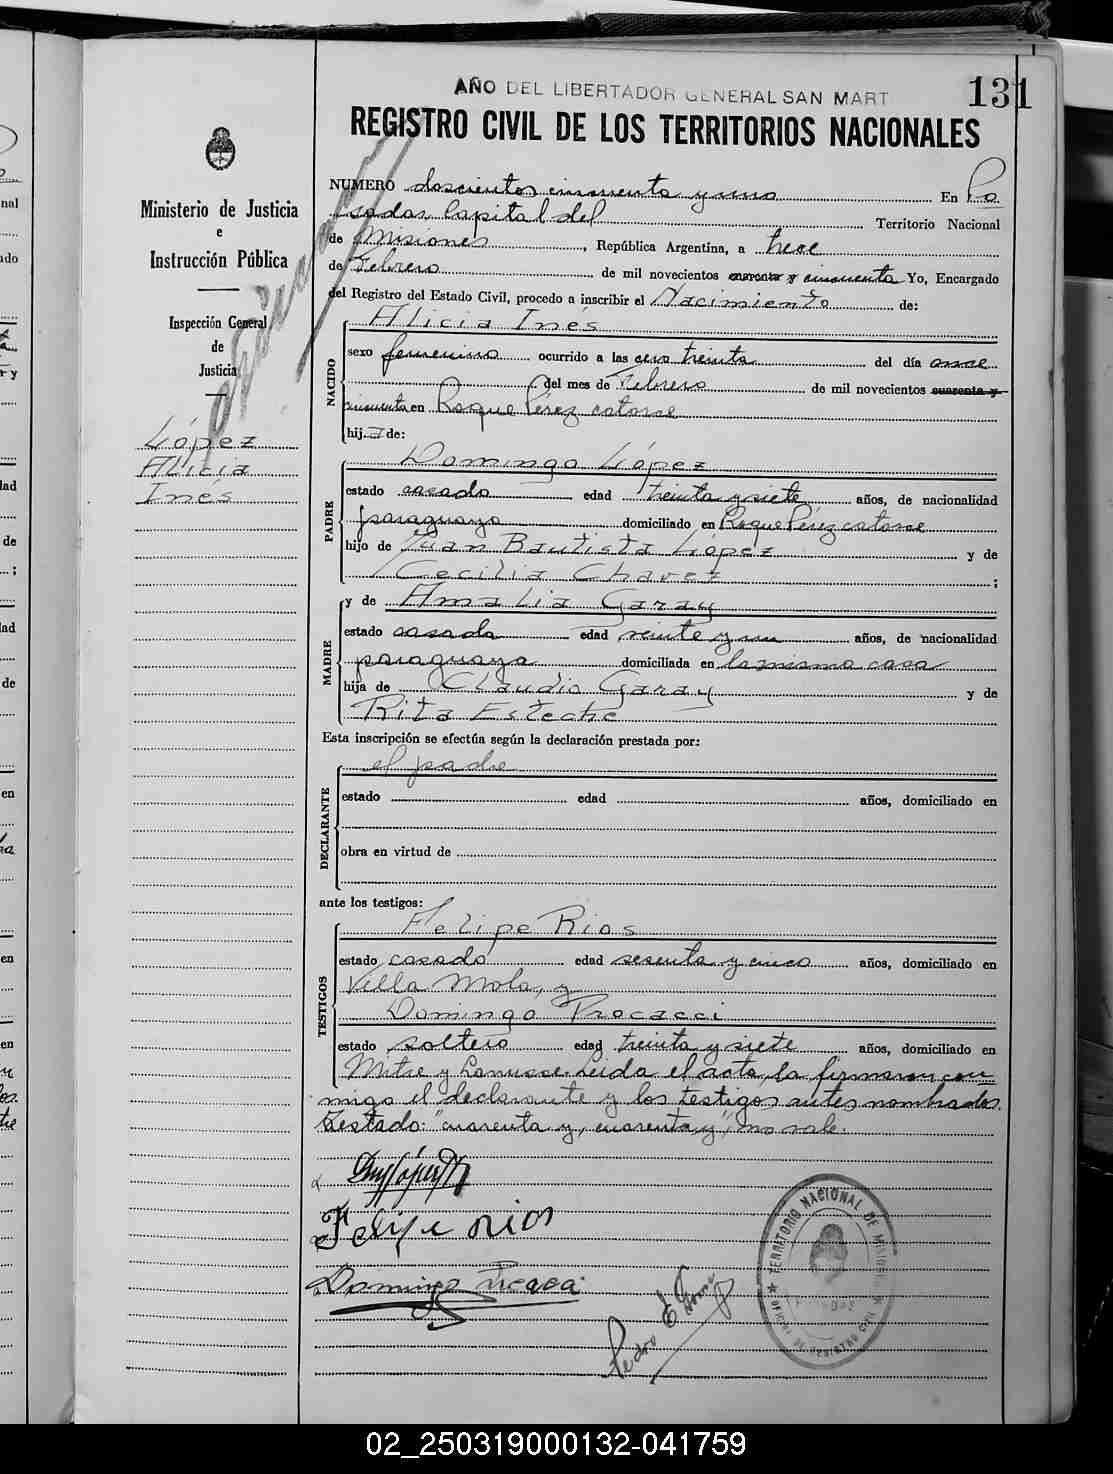 AÑO DEL LIBERTADOR GENERAL SAN MART
131
REGISTRO CIVIL DE LOS TERRITORIOS NACIONALES
Ministerio de Justicia
e
Instrucción Pública
Inspección General
de
Justicia
López
Alicia
Inés
NUMERO doscientos cincuenta y uno En Po
sadas, Capital del Territorio Nacional
de Misiones, República Argentina, a trece
de Febrero de mil novecientos cuarenta y cincuenta Yo, Encargado
del Registro del Estado Civil, procedo a inscribir el Nacimiento de:
NACIDO
Alicia Inés
sexo femenino ocurrido a las cero treinta del día once
del mes de Febrero de mil novecientos cuarenta y
cincuenta en Roque Pérez catorce
hija de:
PADRE
Domingo López
estado casado edad treinta y siete años, de nacionalidad
paraguaya domiciliado en Roque Pérez catorce
hijo de Juan Bautista López y de
Cecilia Chavez ;
MADRE
y de Amalia Garay
estado casada edad veinte y un años, de nacionalidad
paraguaya domiciliada en la misma casa
hija de Claudio Garay y de
Rita Esteche
Esta inscripción se efectúa según la declaración prestada por:
DECLARANTE
el padre
estado edad años, domiciliado en
obra en virtud de
ante los testigos:
TESTIGOS
Felipe Rios
estado casado edad sesenta y cinco años, domiciliado en
Villa Mola, y
Domingo Procacci
estado soltero edad treinta y siete años, domiciliado en
Mitre y Lanusse. Leida el acta, la firmaron con
migo el declarante y los testigos antes nombrados.
Testado: "cuarenta y, cuarenta y", no vale.
Felipe rios
Pedro E
TERRITORIO NACIONAL DE MISIONES
OFICINA DE REGISTRO CIVIL
02_250319000132-041759